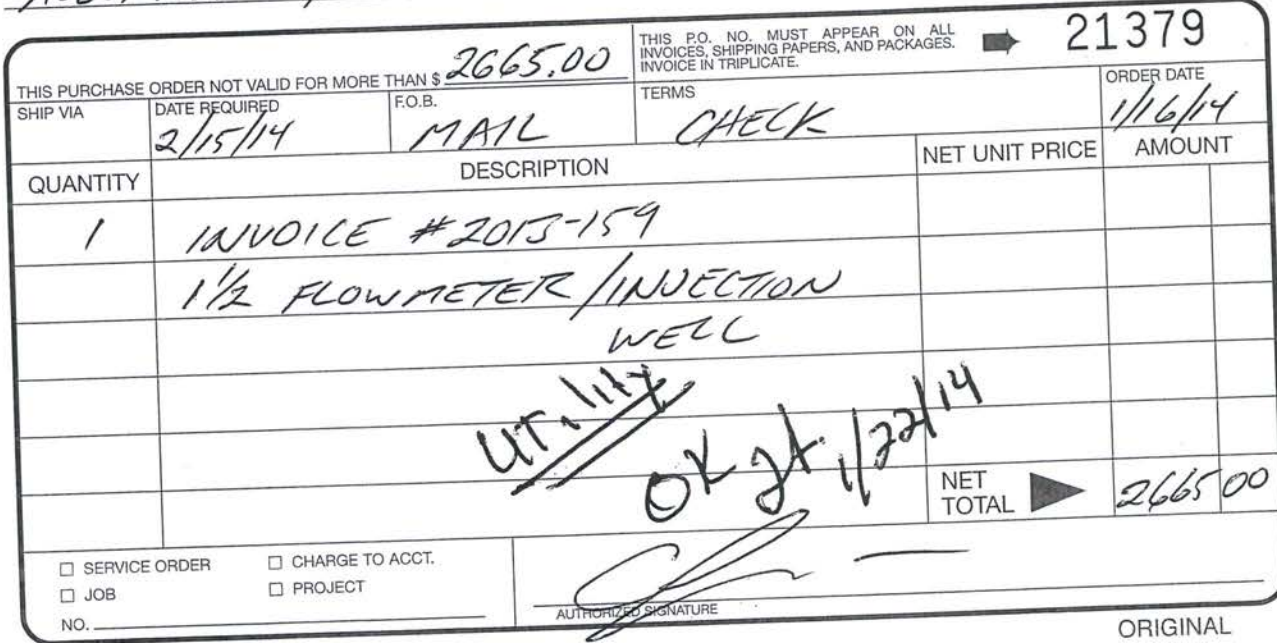 THIS PURCHASE ORDER NOT VALID FOR MORE THAN $ 2665.00
THIS P.O. NO. MUST APPEAR ON ALL
INVOICES, SHIPPING PAPERS, AND PACKAGES.
INVOICE IN TRIPLICATE.
21379
SHIP VIA
DATE REQUIRED
2/15/14
F.O.B.
MAIL
TERMS
CHECK
ORDER DATE
1/16/14
QUANTITY DESCRIPTION NET UNIT PRICE AMOUNT
1 INVOICE #2013-159
1 1/2 FLOWMETER/INJECTION
WELL
UTility
OK 1/22/14
NET
TOTAL 2665 00
☐ SERVICE ORDER ☐ CHARGE TO ACCT.
☐ JOB ☐ PROJECT
NO.
AUTHORIZED SIGNATURE
ORIGINAL